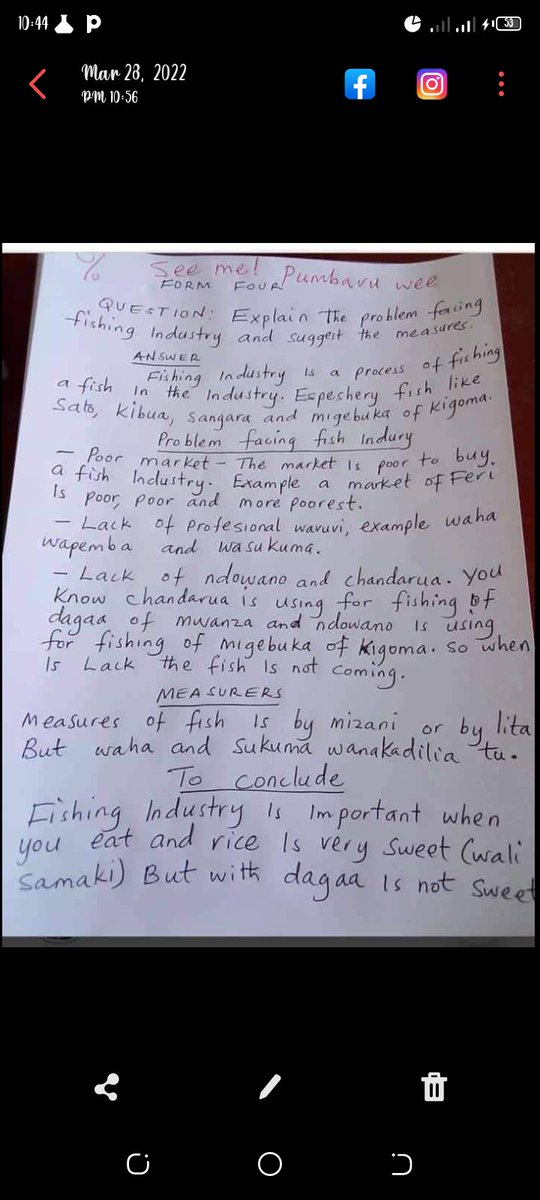 10:44
53
Mar 28, 2022
PM 10:56
% See me! Pumbavu wee
FORM FOUR
QUESTION: Explain the problem facing
fishing Industry and suggest the measures.
ANSWER
Fishing Industry Is a process of fishing
a fish in the Industry. Espeshery fish like
Sato, Kibua, Sangara and migebuka of Kigoma.
Problem facing fish Indury
– Poor market – The market Is poor to buy
a fish Industry. Example a market of Feri
Is poor, poor and more poorest.
– Lack of Profesional wavuvi, example waha
wapemba and wasukuma.
– Lack of ndowano and chandarua. You
Know chandarua is using for fishing of
dagaa of mwanza and ndowano Is using
for fishing of migebuka of Kigoma. So when
Is Lack the fish Is not coming.
MEASURERS
Measures of fish Is by mizani or by lita
But waha and Sukuma wanakadilia tu.
To conclude
Fishing Industry Is Important when
you eat and rice Is very sweet (wali
Samaki) But with dagaa Is not sweet